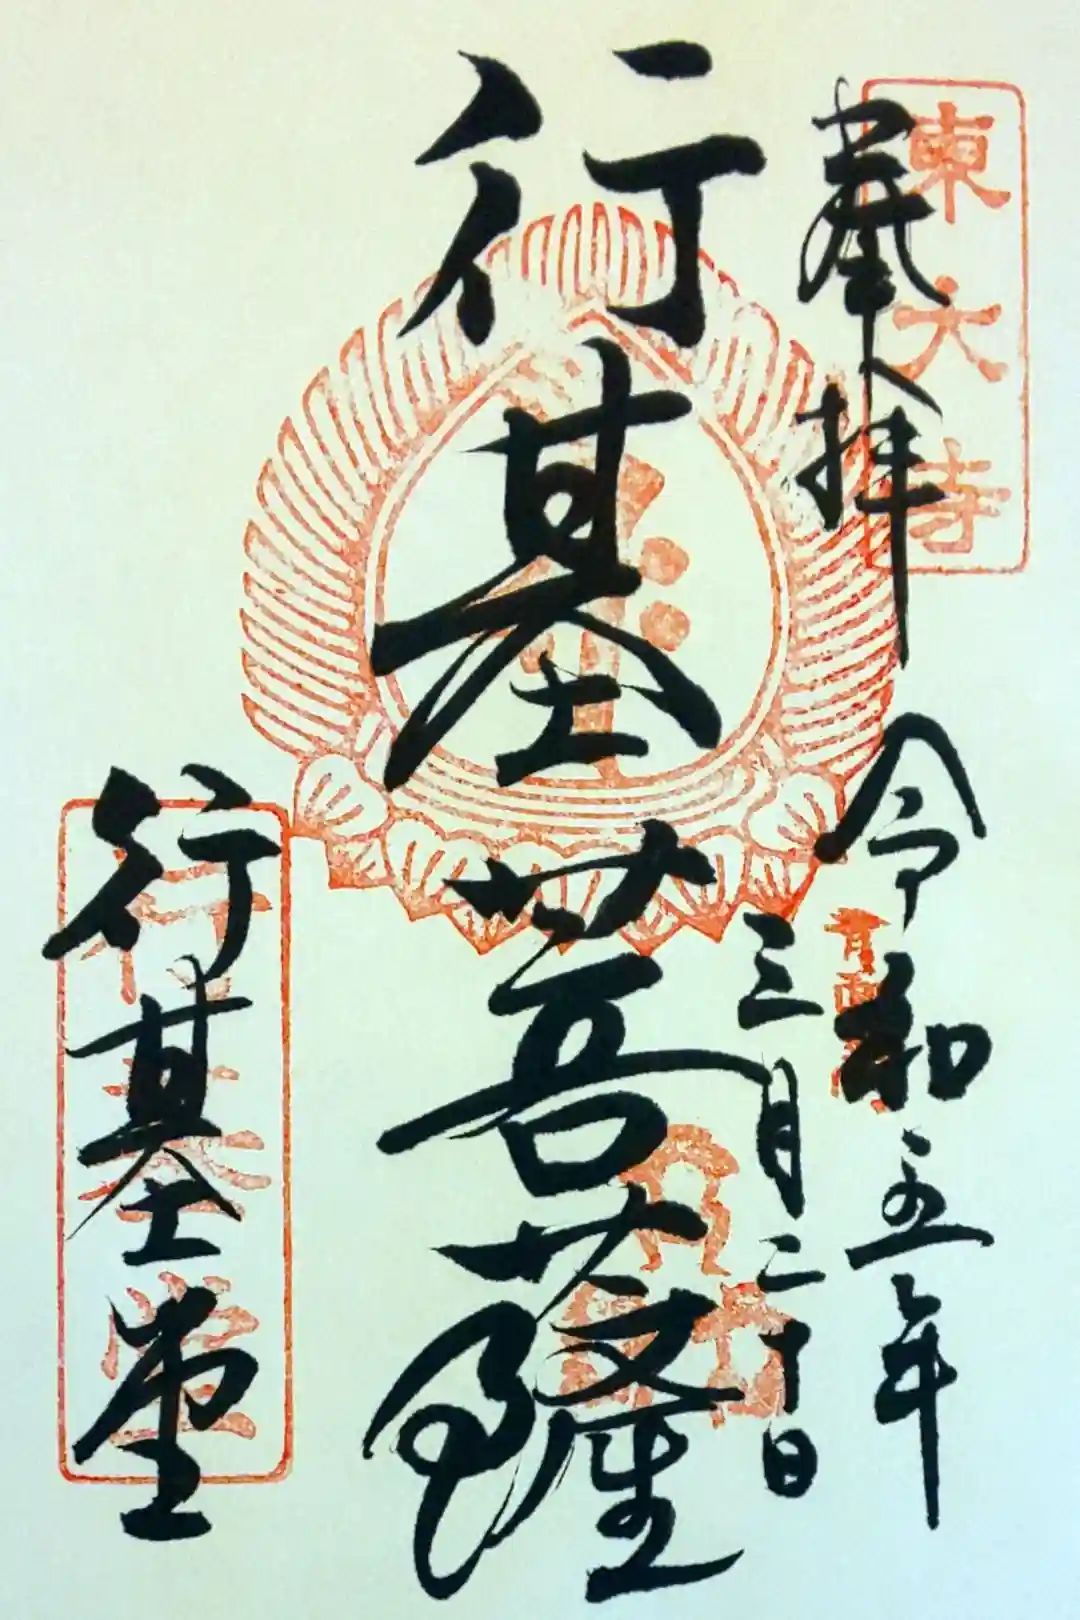 東大寺
奉拝
令和五年
三月二十日
行基菩薩
行基堂
行基堂